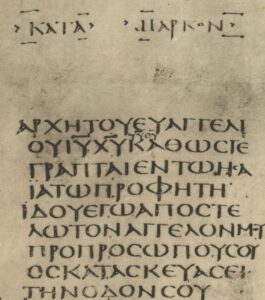 ΚΑΤΑ ΜΑΡΚΟΝ
ΑΡΧΗΤΟΥΕΥΑΓΓΕΛΙ
ΟΥΙΥΧΥΚΑΘΩϹΓΕ
ΓΡΑΠΤΑΙΕΝΤΩΗϹΑ
ΪΑΤΩΠΡΟΦΗΤΗ
ΪΔΟΥΕΓΩΑΠΟϹΤΕ
ΛΩΤΟΝΑΓΓΕΛΟΝΜΟΥ
ΠΡΟΠΡΟϹΩΠΟΥϹΟΥ
ΟϹΚΑΤΑϹΚΕΥΑϹΕΙ
ΤΗΝΟΔΟΝϹΟΥ